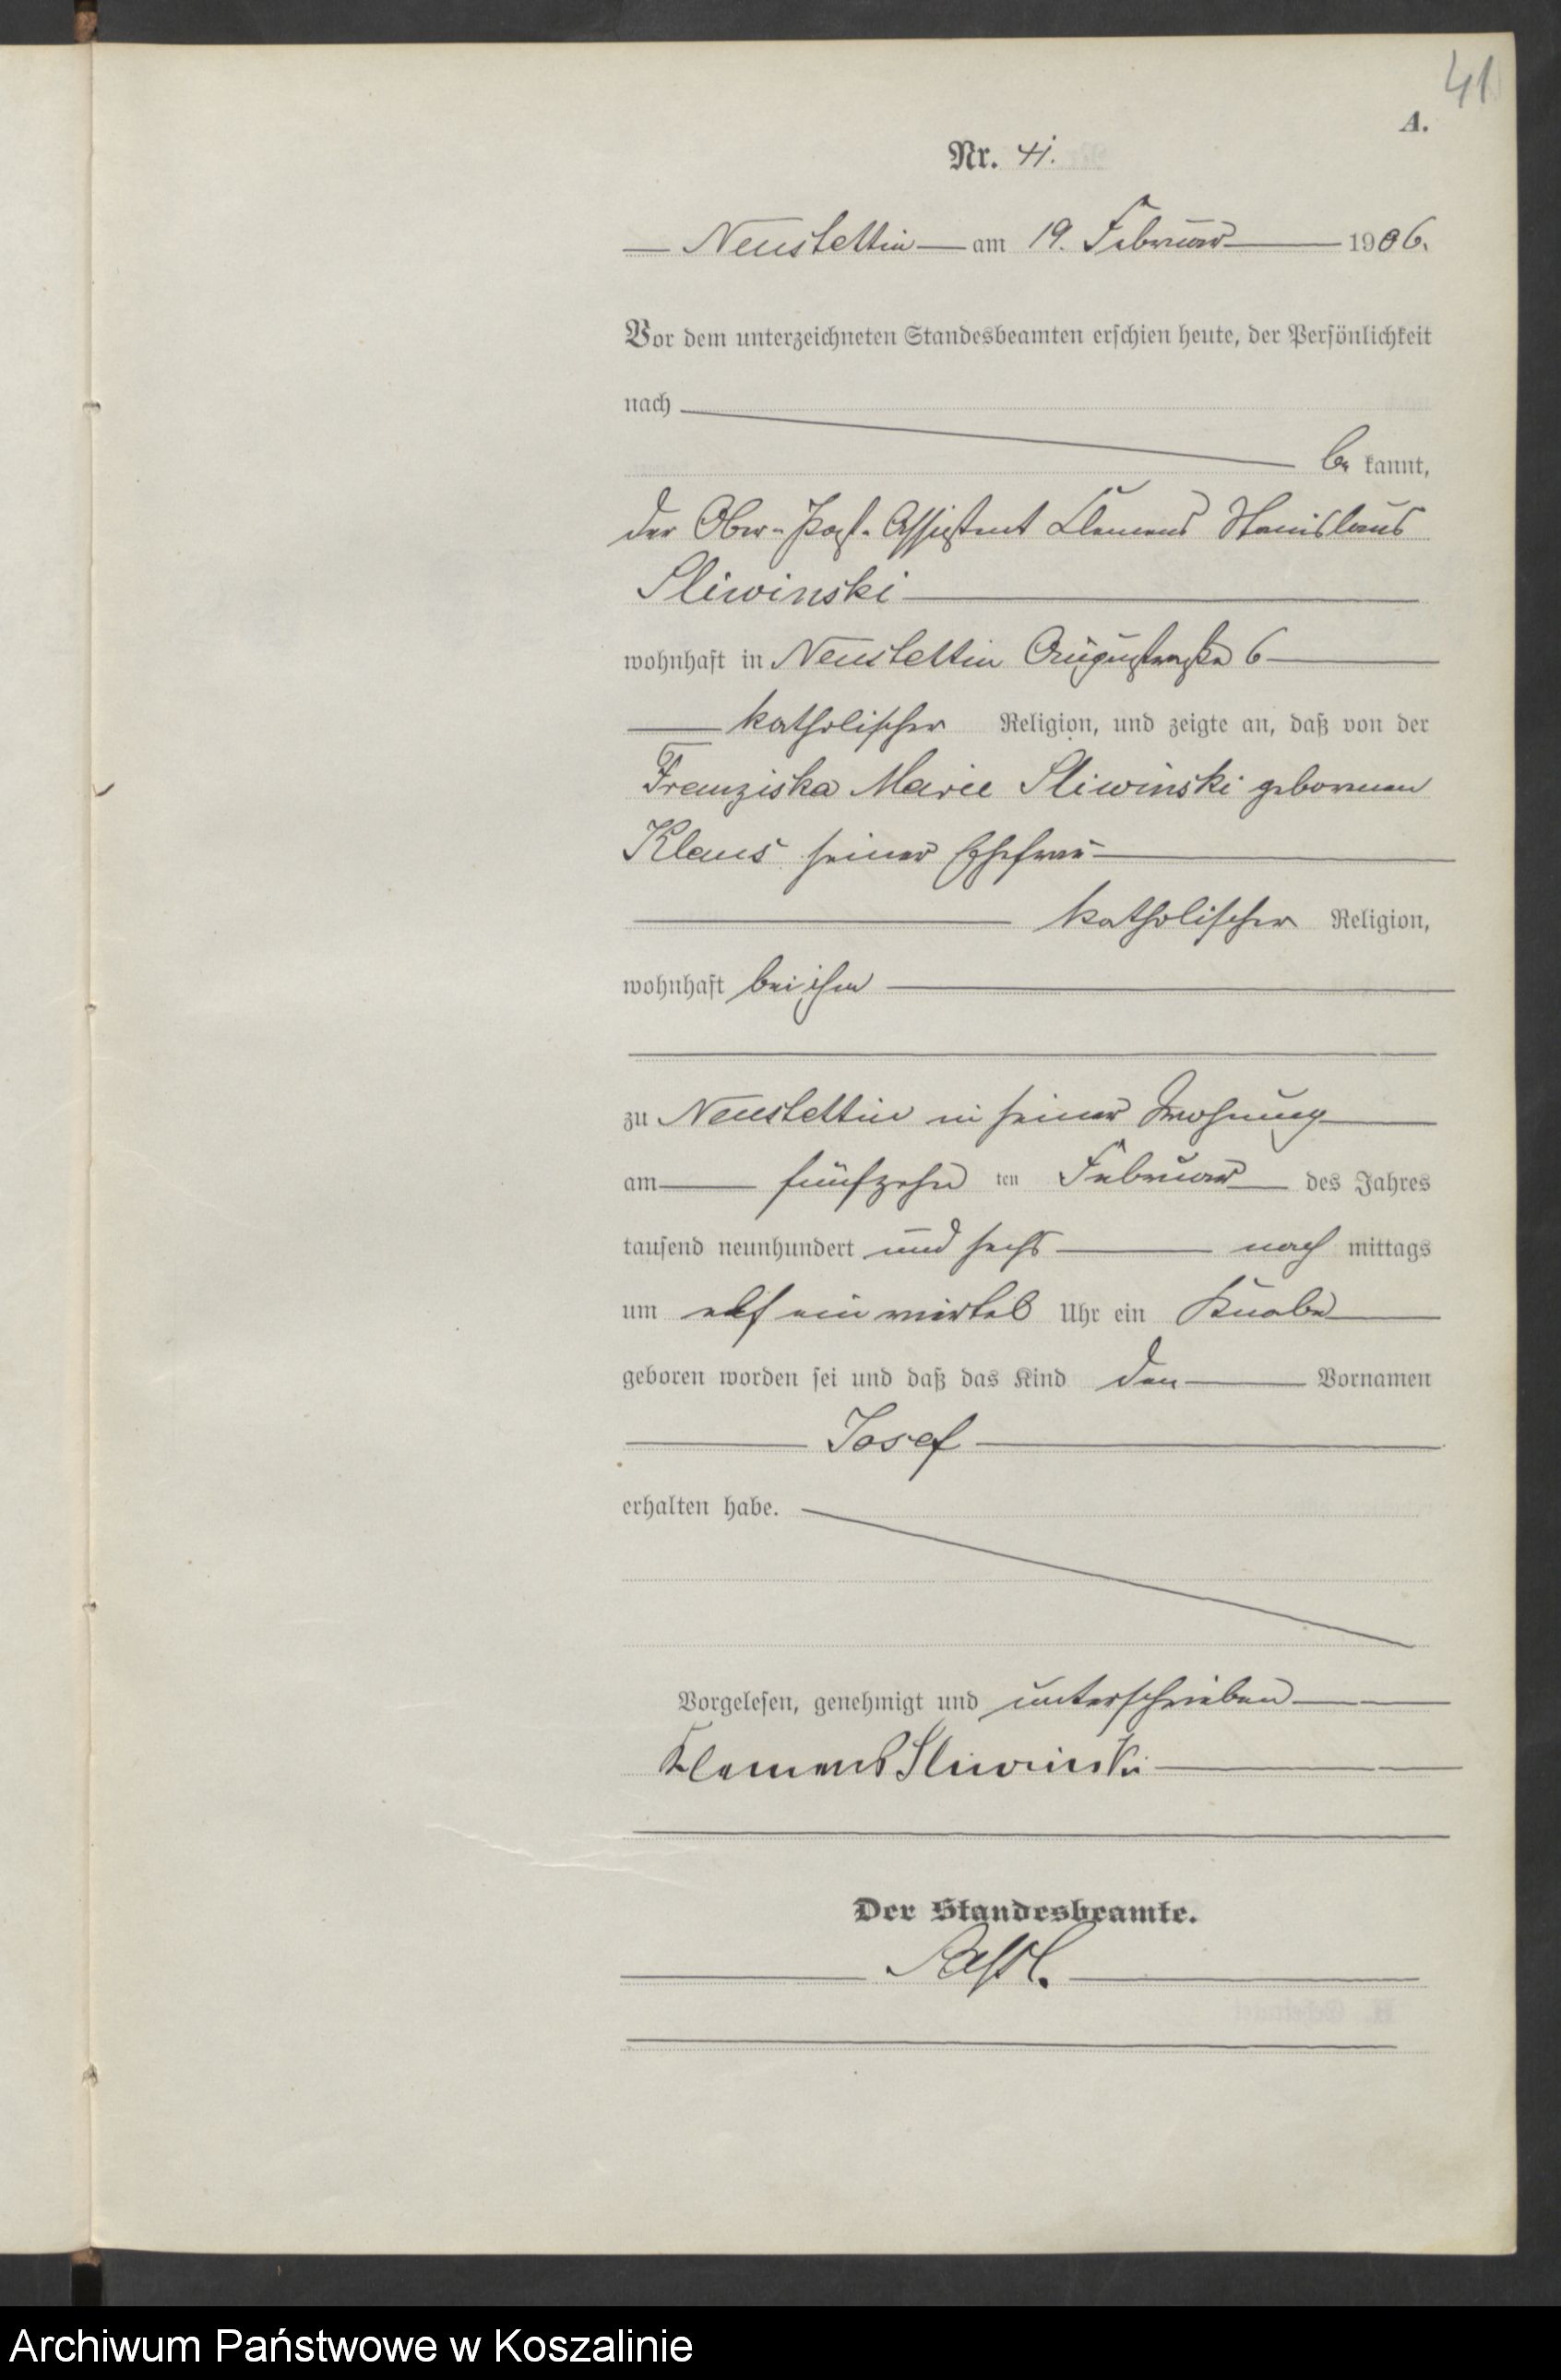 41
A.
Nr. 41.
Neustettin am 19. Februar 1906.
Vor dem unterzeichneten Standesbeamten erschien heute, der Persönlichkeit
nach
be kannt,
der Ober-Post-Assistent Klemens Stanislaus
Sliwinski
wohnhaft in Neustettin Auguststraße 6
katholischer Religion, und zeigte an, daß von der
Franziska Marie Sliwinski geborenen
Klaus seiner Ehefrau
katholischer Religion,
wohnhaft bei ihm
zu Neustettin in seiner Wohnung
am fünfzehn ten Februar des Jahres
tausend neunhundert und sechs nach mittags
um elf ein viertel Uhr ein Knabe
geboren worden sei und daß das Kind den Vornamen
Josef
erhalten habe.
Vorgelesen, genehmigt und unterschrieben
Klemens Sliwinski
Der Standesbeamte.
Archiwum Państwowe w Koszalinie